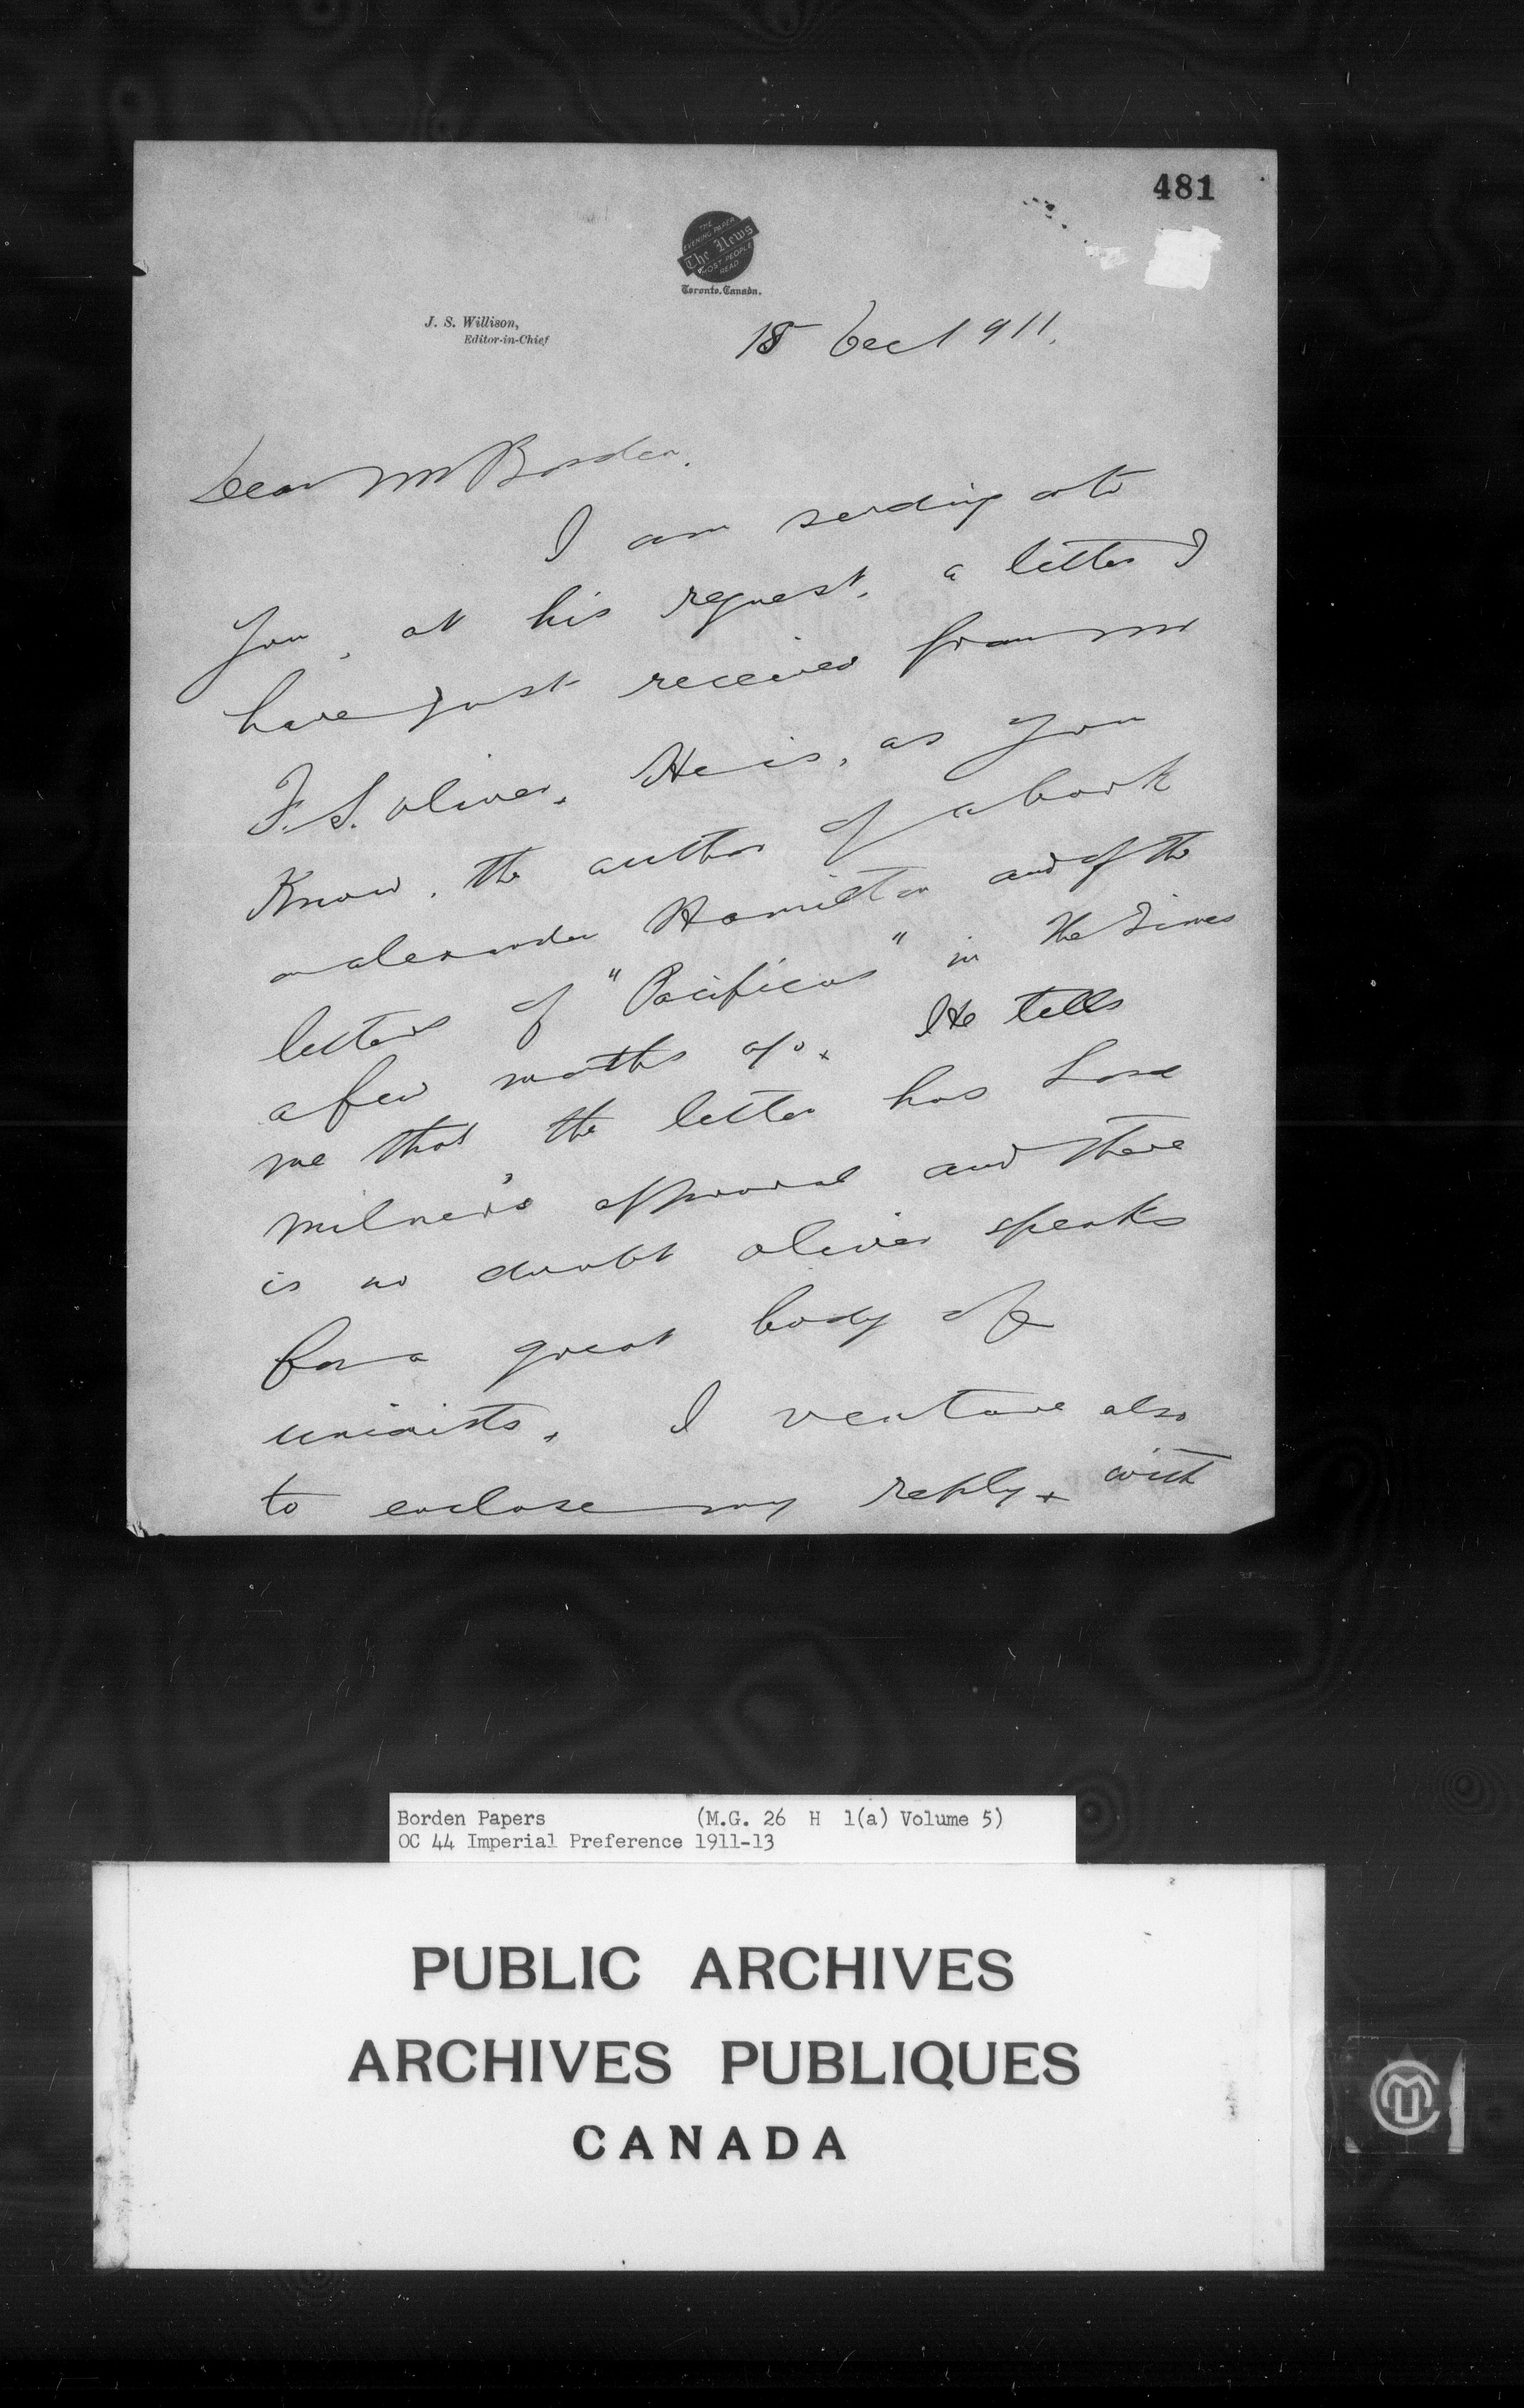 481
THE
EVENING PAPER
The News
MOST PEOPLE
READ
Toronto. Canada.
J. S. Willison,
Editor-in-Chief
15 Dec 1911.
Dear Mr Borden.
I am sending onto
you, at his request, a letter I
have just received from Mr
F. S. Oliver. He is, as you
know, the author of a book
on Alexander Hamilton and of the
letters of "Pacificus" in The Times
a few months ago. He tells
me that the letter has Lord
Milner's approval and there
is no doubt Oliver speaks
for a great body of
unionists. I venture also
to enclose my reply. with
Borden Papers (M.G. 26 H 1(a) Volume 5)
OC 44 Imperial Preference 1911-13
PUBLIC ARCHIVES
ARCHIVES PUBLIQUES
CANADA